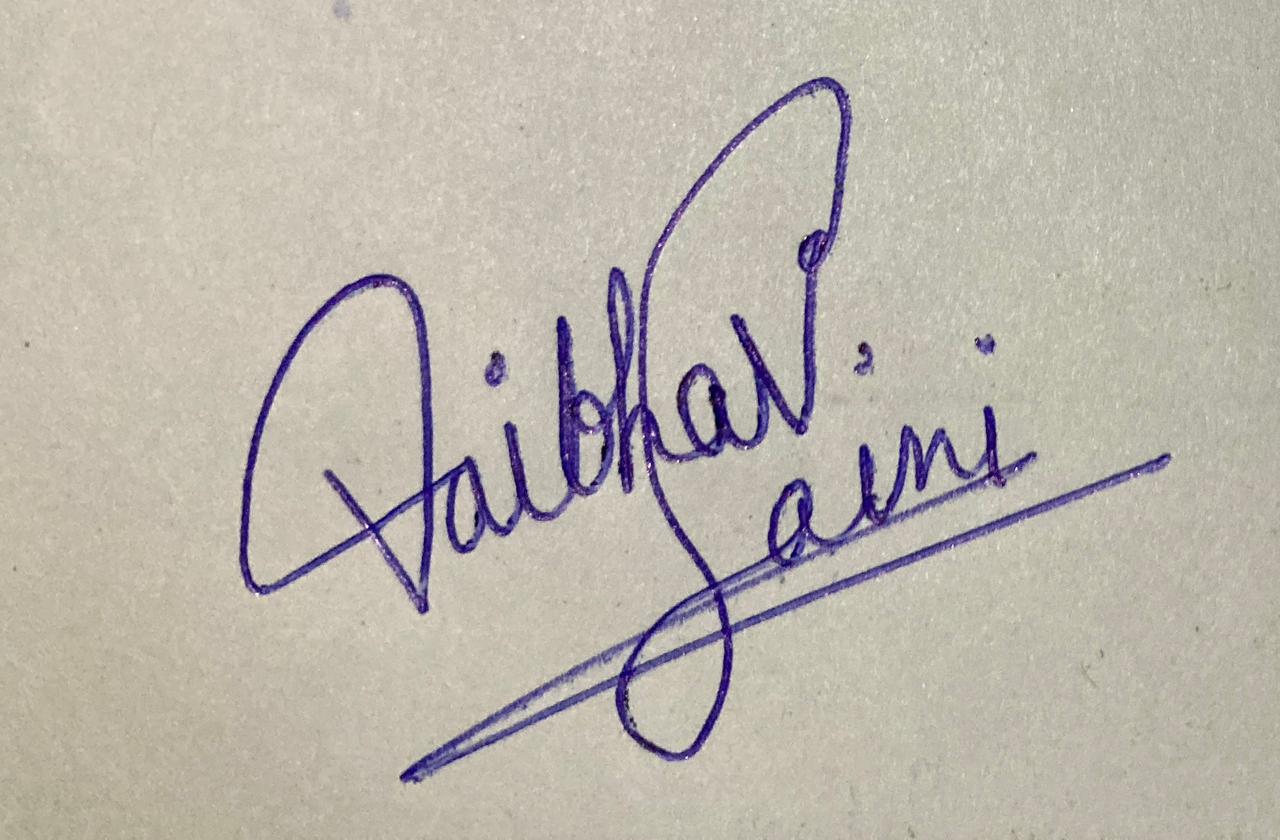 Vaibhav.
Saini